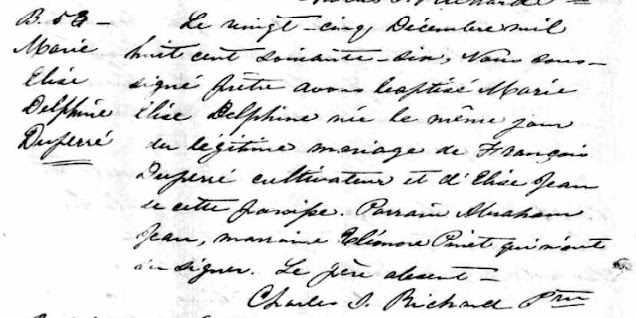 B. 53 — Le vingt-cinq Décembre mil
Marie huit cent soixante-six, Nous sous-
Elise signé prêtre avons baptisé Marie
Delphine Elise Delphine née le même jour
Duperré du légitime mariage de François
Duperré cultivateur et d'Elise Jean
de cette paroisse. Parrain Abraham
Jean, marraine Eléonore Pinet qui n'ont
su signer. Le père absent —
Charles S. Richard Ptre